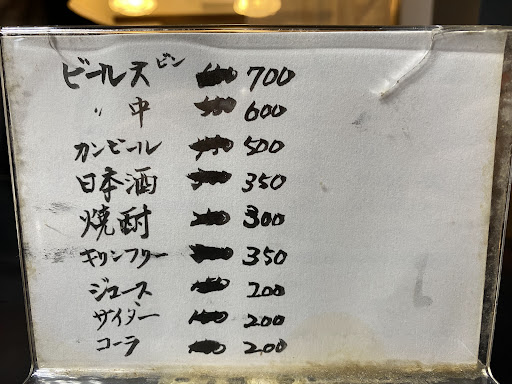 ビール大ビン 700
〃 中 600
カンビール 500
日本酒 350
焼酎 300
キリンフリー 350
ジュース 200
サイダー 200
コーラ 200